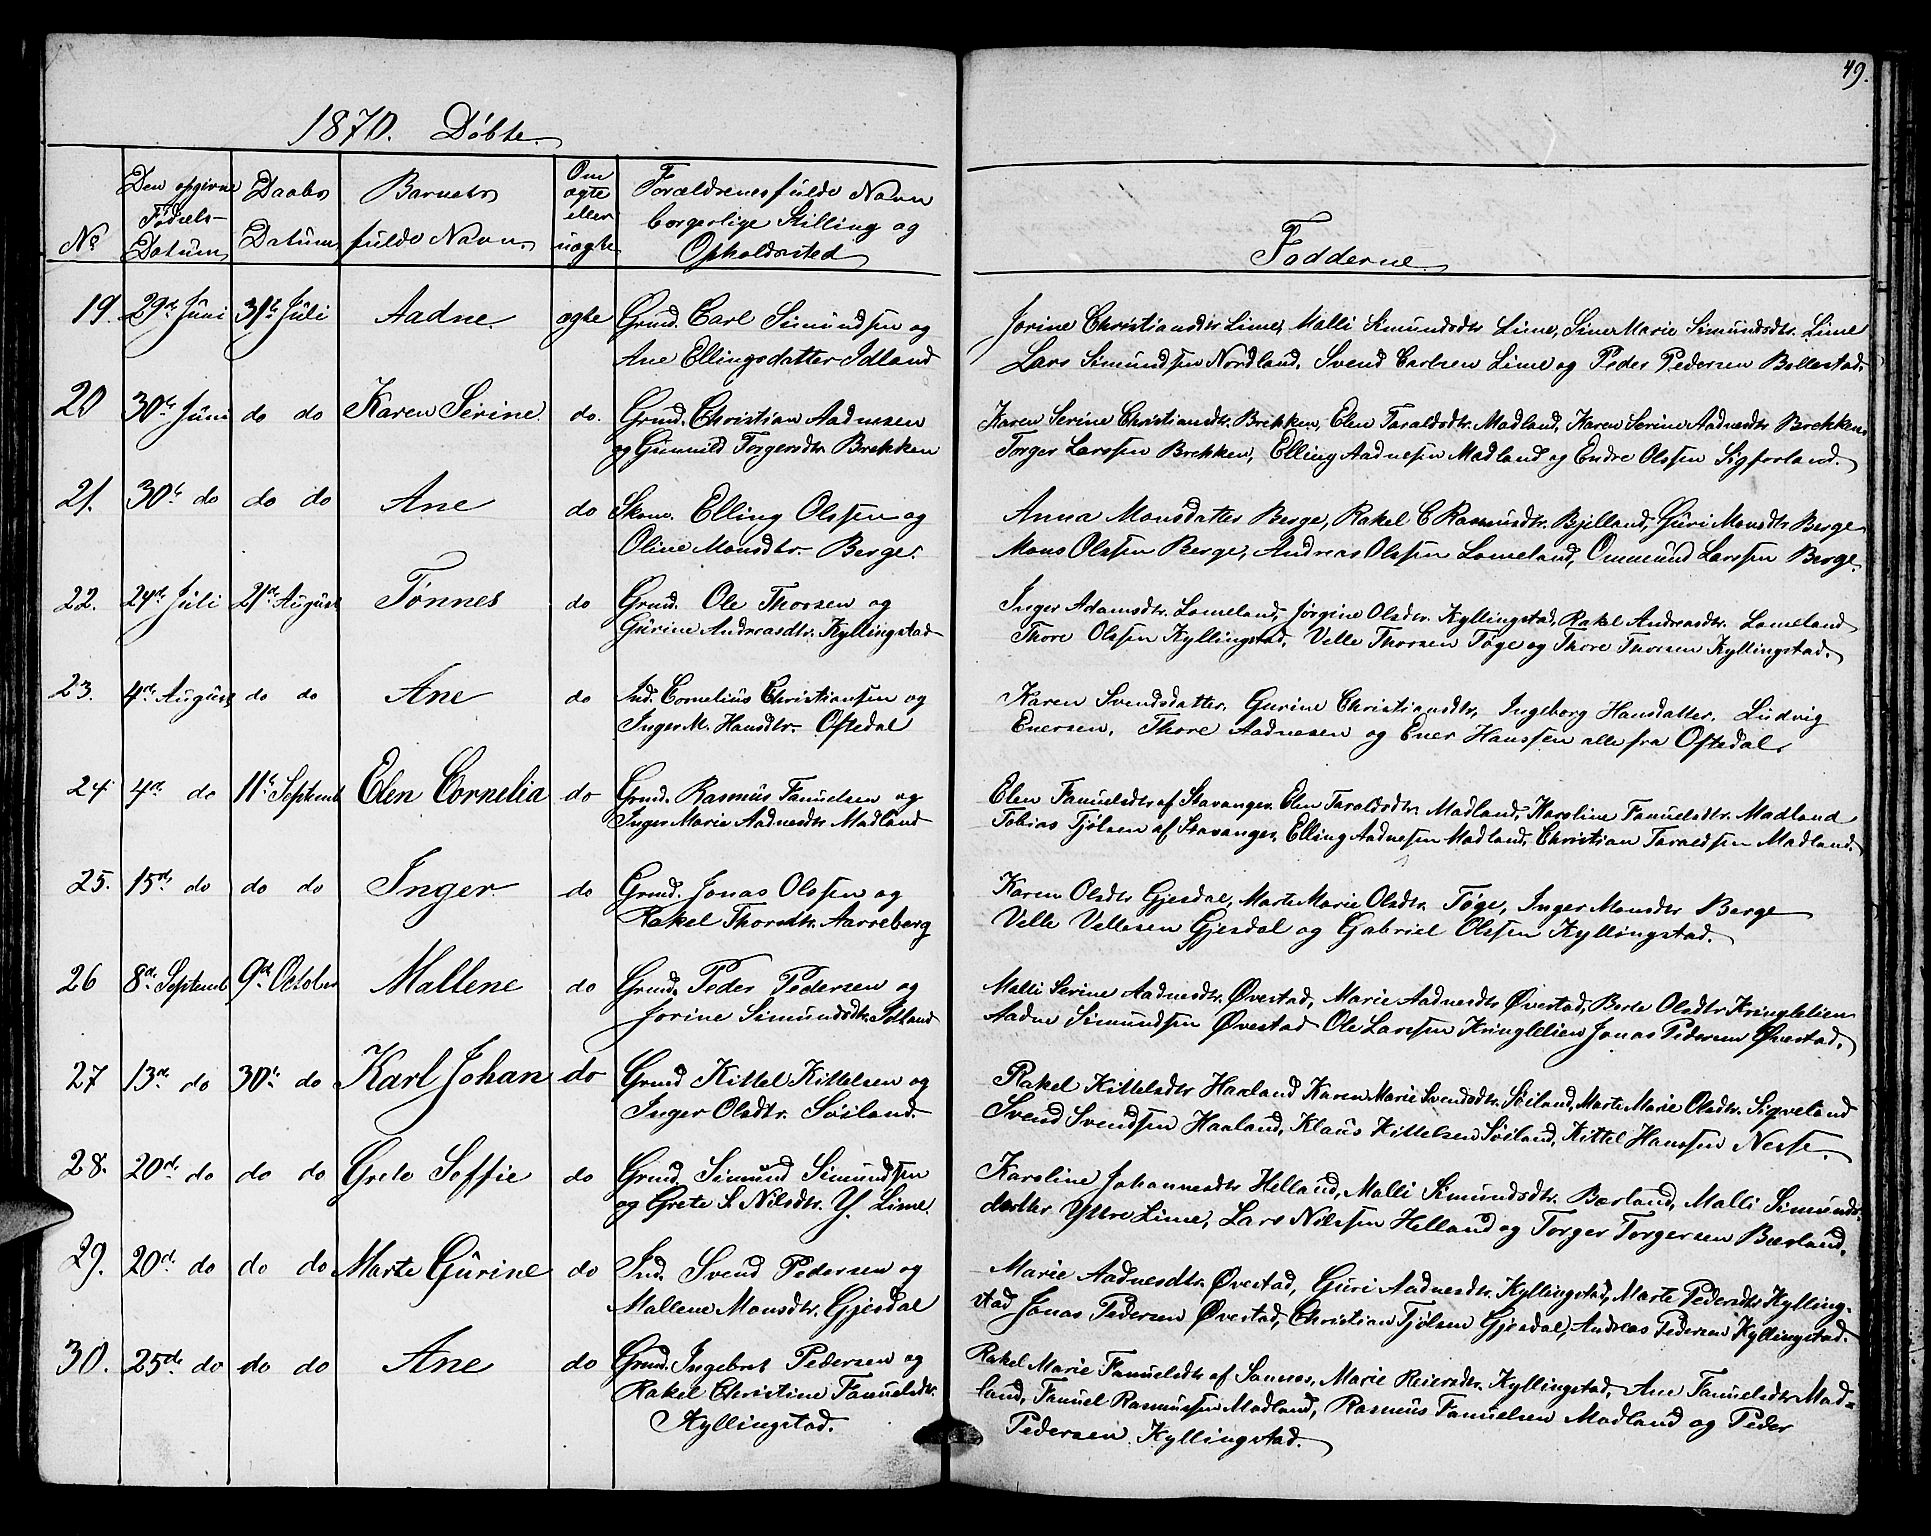 49.
1870. Döbte.
No
Den opgivne Fødsels-Datum
Daabs Datum
Barnets fulde Navn.
Om ægte eller uægte
Forældrenes fulde Navn borgerlige Stilling og Opholdssted
Fadderne.
19. 29de Juni 31te Juli Aadne. ægte Grmd. Carl Simundsen og
Ane Ellingsdatter Idland
Jorine Christiansdtr Lime, Malli Simundsdtr Lime, Sine Marie Simundsdtr. Lime
Lars Simundsen Nordland, Svend Carlsen Lime og Peder Pedersen Bollestad.
20 30te Juni do do Karen Serine. do. Grmd. Christian Aadnesen
og Gunnild Torgersdtr. Brekken
Karen Serine Christiansdtr. Brekken, Elen Taraldsdtr. Madland, Karen Serine Aadnesdtr Brekken
Torger Larssen Brekken, Elling Aadnesen Madland og Endre Olssen
21. 30te do do do Ane do Skom. Elling Olssen og
Oline Monsdtr. Berge.
Anna Monsdatter Berge, Rakel C Rasmusdtr. Bjelland, Guri Monsdtr Berge
Mons Olssen Berge, Andreas Olssen Lomeland, Ommund Larssen Berge.
22. 24de Juli 21de August Tönnes do Grmd. Ole Thorsen og
Gurine Andreasdtr. Kyllingstad
Inger Adamsdtr. Lomeland, Jörgine Olsdtr. Kyllingstad, Rakel Andreasdtr. Lomeland
Thore Olssen Kyllingstad, Velle Thorsen Töge og Thore Thorsen Kyllingstad.
23. 4de August do do Ane do Ind. Cornelius Christiansen og
Inger M. Hansdtr. Oftedal
Karen Svendsdatter, Gurine Christiansdtr, Ingeborg Hansdatter, Ludvig
Enersen, Thore Aadnesen og Ener Hanssen alle fra Oftedal.
24 4de do 11te Septemb Elen Cornelia do Grmd. Rasmus Fanuelsen og
Inger Marie Aadnesdtr Madland
Elen Fanuelsdtr af Stavanger, Elen Taraldsdtr. Madland, Karoline Fanuelsdtr. Madland
Tobias Tjölsen af Stavanger, Elling Aadnesen Madland, Christian Taraldsen Madland.
25. 15de do do do Inger do Grmd. Jonas Olssen og
Rakel Thorsdtr. Aarreberg
Karen Olsdtr Gjesdal, Marte Marie Olsdtr. Töge, Inger Monsdtr Berge
Velle Vellesen Gjesdal og Gabriel Olssen Kyllingstad.
26 8de Septemb 9de October Mallene do Grmd. Peder Pedersen og
Jorine Simundsdtr. Idland
Malli Serine Aadnesdtr. Øvestad, Marie Aadnesdtr Øvestad, Berte Olsdtr Kringlelien
Aadne Simundsen Øvestad Ole Larssen Kringlelien Jonas Pedersen Øvestad.
27 13de do 30te do Karl Johan do Grmd Kittel Kittelsen og
Inger Olsdtr. Söiland.
Rakel Kittelsdtr Haaland Karen Marie Svendsdtr. Söiland, Marte Marie Olsdtr. Sigveland
Svend Svendsen Haaland, Klaus Kittelsen Söiland, Kittel Hanssen Nesse.
28. 20de do do do Grete Soffie do Grmd. Simund Simundsen
og Grete S. Nilsdtr. Y. Lime.
Karoline Johannesdtr Helland, Malli Simundsdtr. Bærland, Malli Simunds-
datter Yttre Lime, Lars Nilssen Helland og Torger Torgersen Bærland.
29. 20de do do do Marte Gurine do Ind. Svend Pedersen og
Mallene Monsdtr. Gjesdal
Marie Aadnesdtr. Øvestad, Guri Aadnesdtr. Kyllingstad, Marte Pedersdtr Kylling-
stad Jonas Pedersen Øvestad, Christian Tjölsen Gjesdal, Andreas Pedersen Kyllingstad.
30. 25de do do do Ane do Grmd. Ingebret Pedersen og
Rakel Christine Fanuelsdtr.
Kyllingstad.
Rakel Marie Fanuelsdtr af Sannes, Marie Reiersdtr. Kyllingstad, Ane Fanuelsdtr Mad-
land, Fanuel Rasmussen Madland, Rasmus Fanuelsen Madland og Peder
Pedersen Kyllingstad.